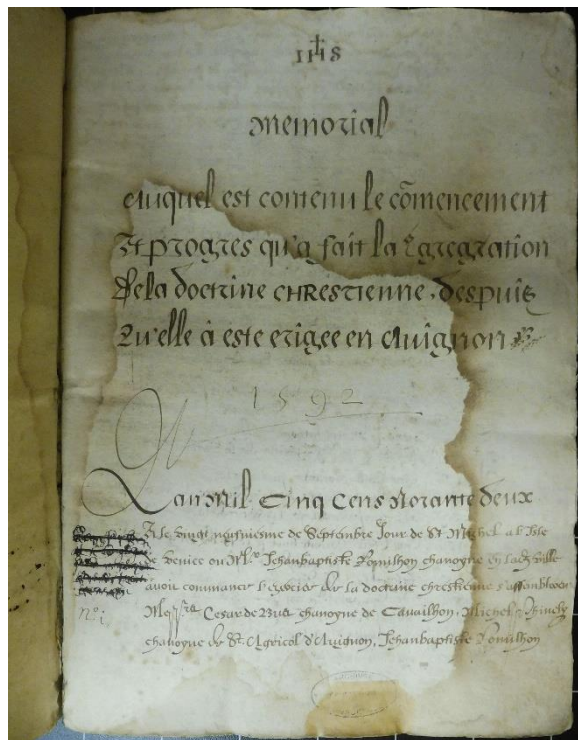 IHS
Memorial
Auquel est contenu le cõmencement
Et progres qu'a fait la Cõgregration
De la doctrine CHRESTIENNE, despuis
Qu'elle à este erigee en Avignon
1592
L'an Mil Cinq Cens Nonante deux
Et le vingt neufviesme de Septenbre Jour de St Michel a l'Isle
de Venice ou Mre Jehanbaptiste Romilhon chanoyne en ladz ville
avoit commancer l'exercice de la doctrine chrestienne s'assemblerent
Messrs Cesar de Bus chanoyne de Cavailhon, Michel
No. 1.
chanoyne de St Agricol d'Avignon, Jehanbaptiste Romilhon